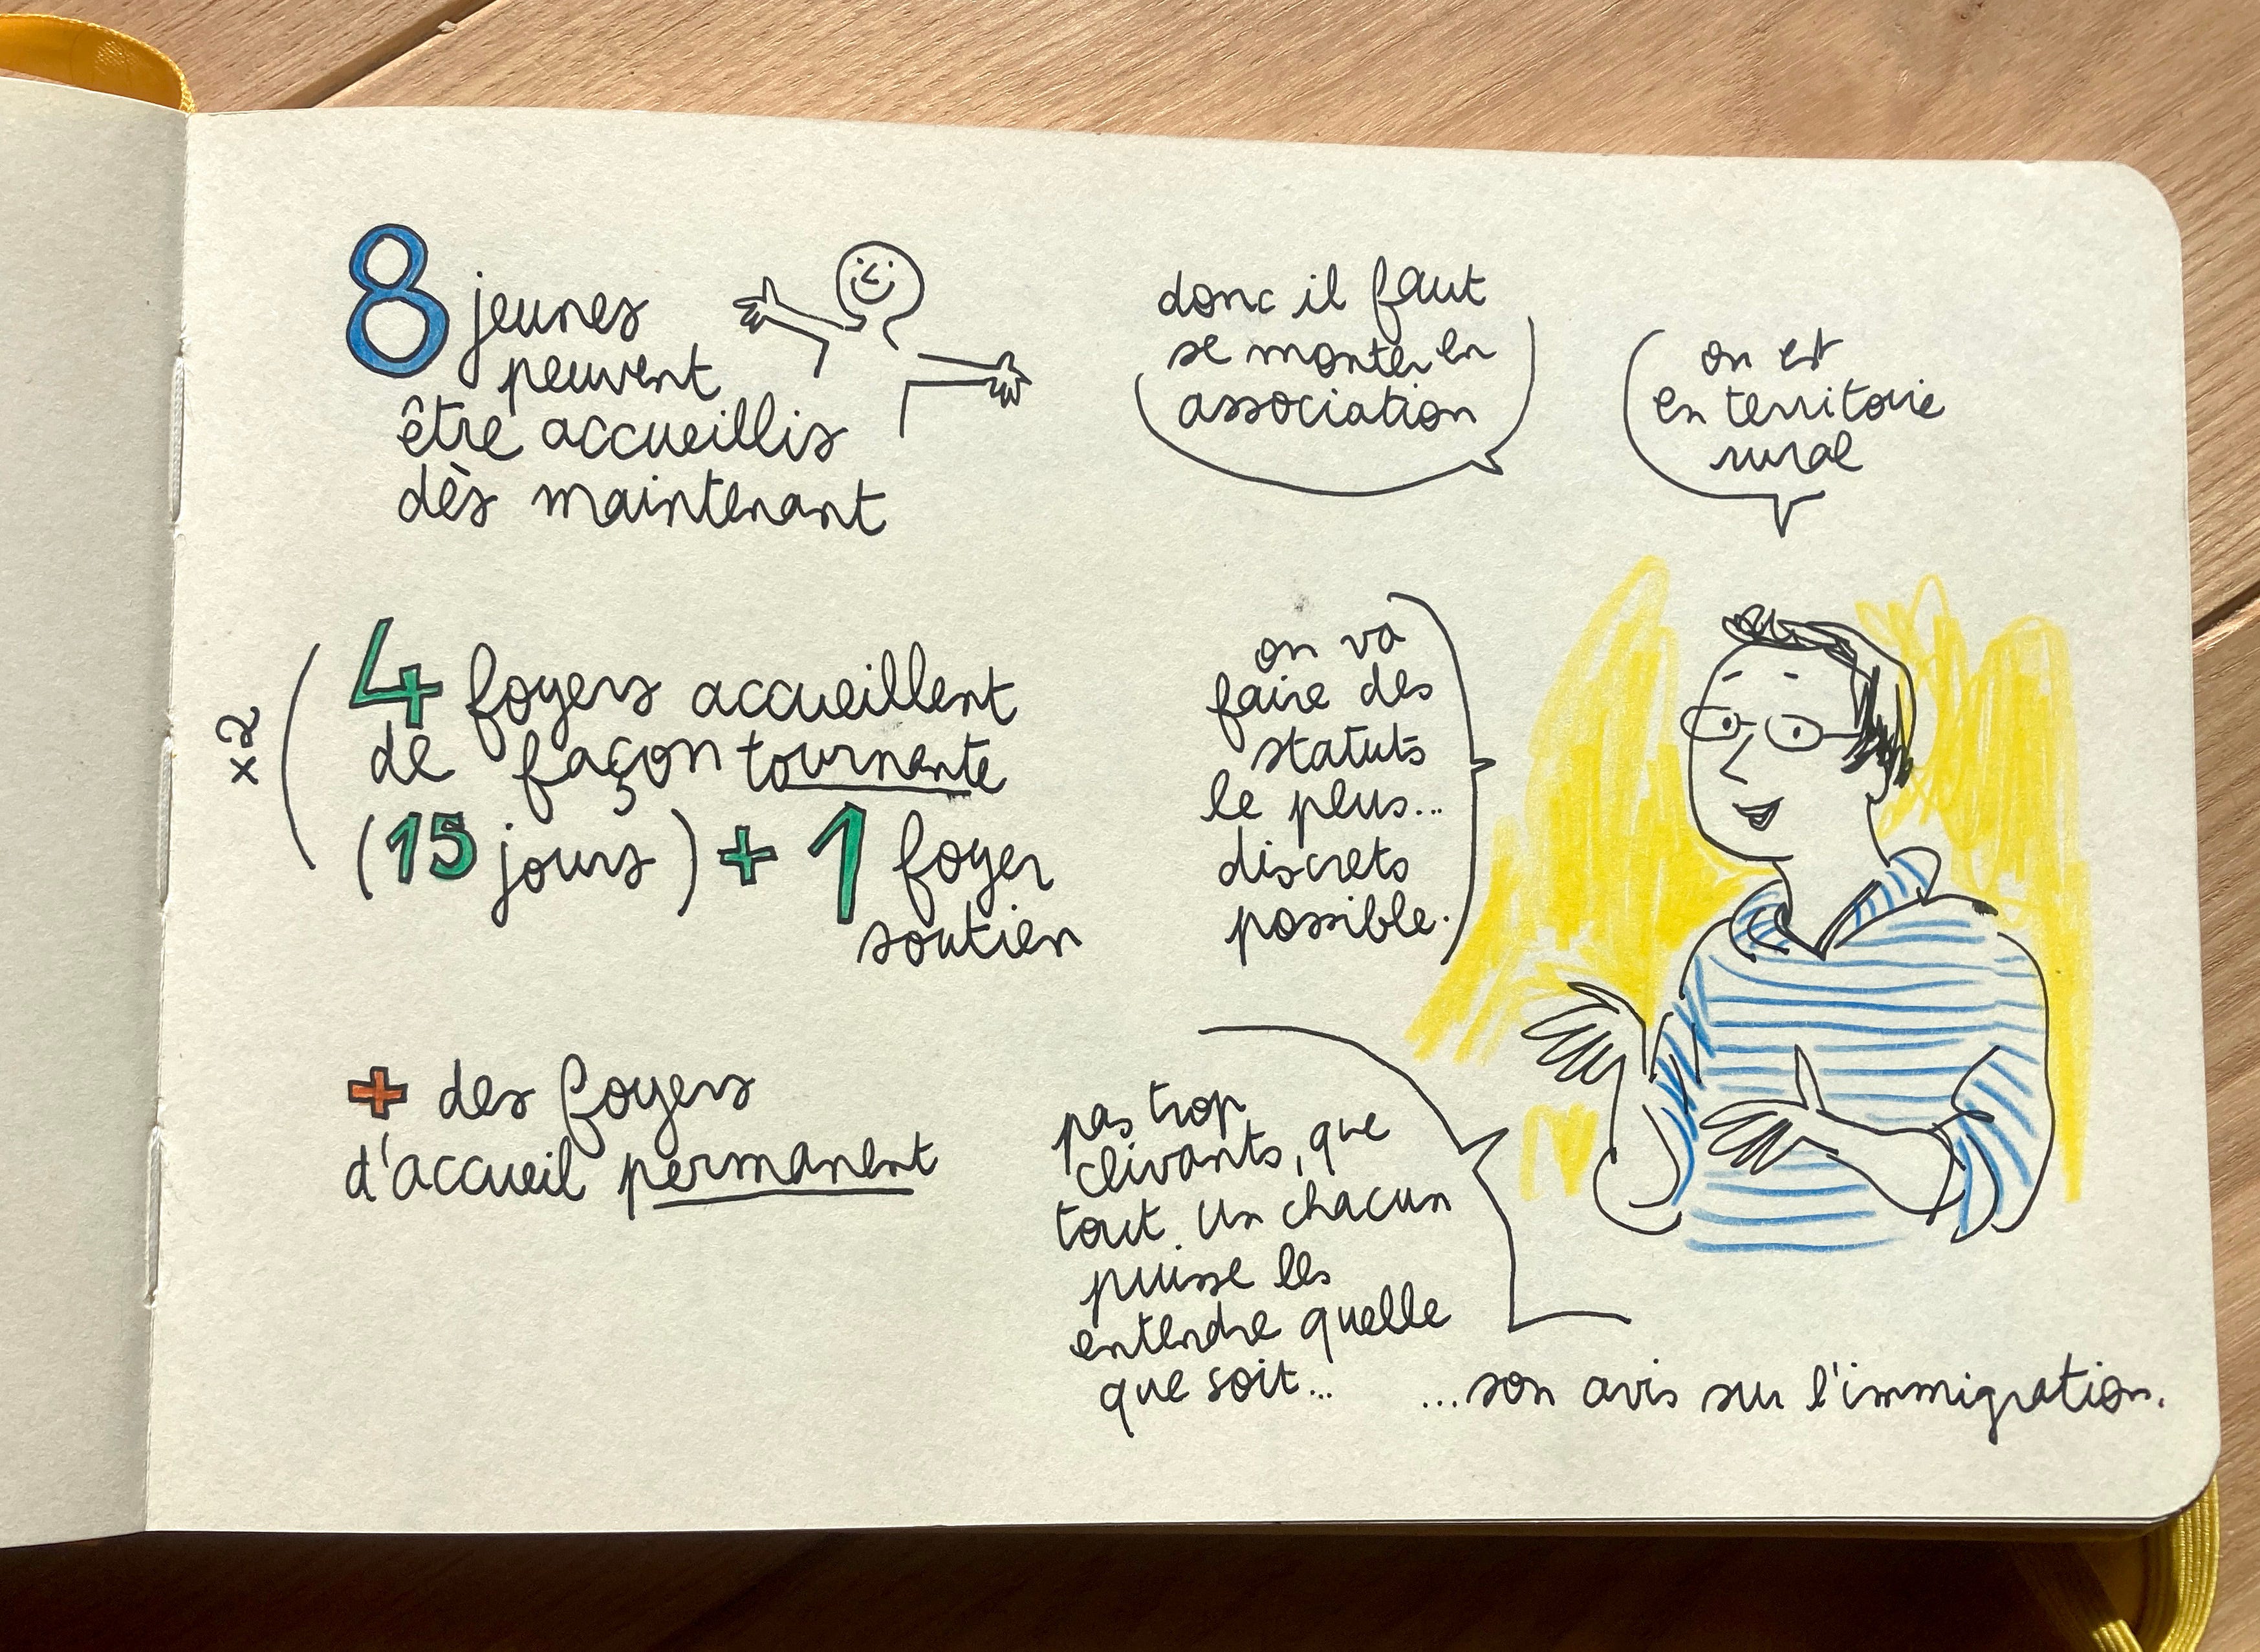 8 jeunes
peuvent
être accueillis
dès maintenant
x2
4 foyers accueillent
de façon tournante
(15 jours) + 1 foyer
soutien
+ des foyers
d'accueil permanent
donc il faut
se monter en
association
on est
en territoire
rural
on va
faire des
statuts
le plus...
discrets
possible.
pas trop
clivants, que
tout un chacun
puisse les
entendre quelle
que soit...
...son avis sur l'immigration.